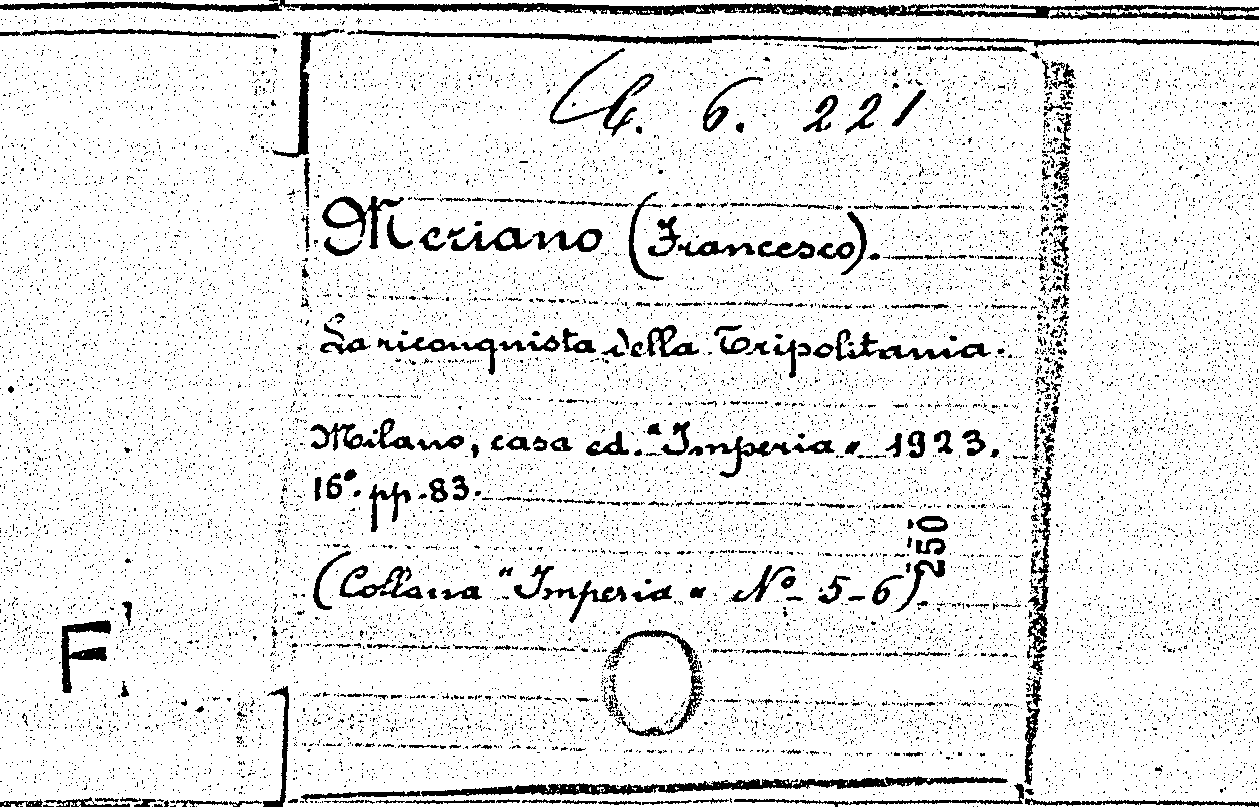 6. 221
Meriano (Francesco).
La riconquista della Tripolitania.
Milano, casa ed. "Imperia" 1923.
16º. pp. 83.
250
(Collana "Imperia" Nº 5-6).
F